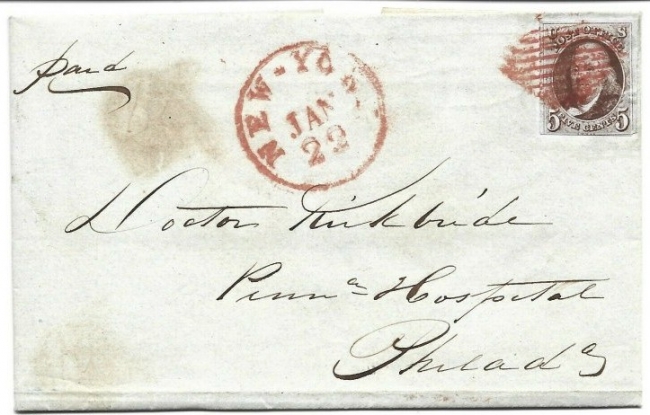 paid
NEW-YORK
JAN
22
U S
POST OFFICE
5 FIVE CENTS 5
Doctor Kirkbride
Penna Hospital
Philada